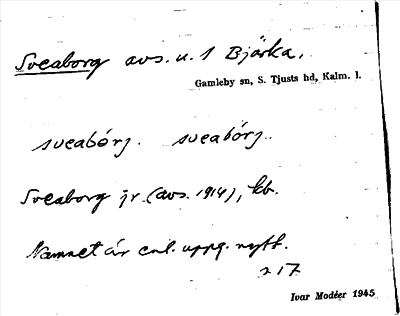 Sveaborg avs. u. 1 Björka.
Gamleby sn, S. Tjusts hd, Kalm. l.
sveabórj. sveabórj.
Sveaborg jr (avs. 1914), kb.
Namnet är enl. uppg. nytt.
s 17
Ivar Modéer 1945